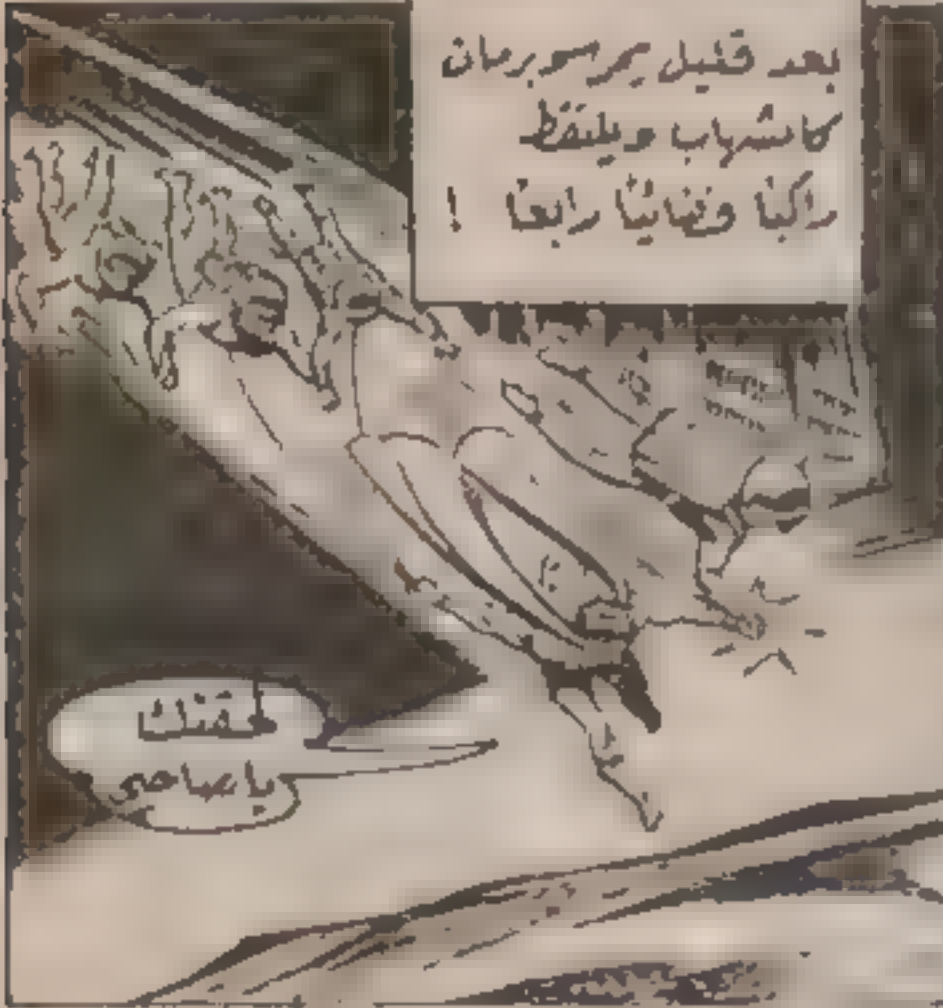 بعد قليل يمر سوبرمان
كالشهاب ويلتقط
راكباً وفضائياً رابعاً !
يا صاحبي